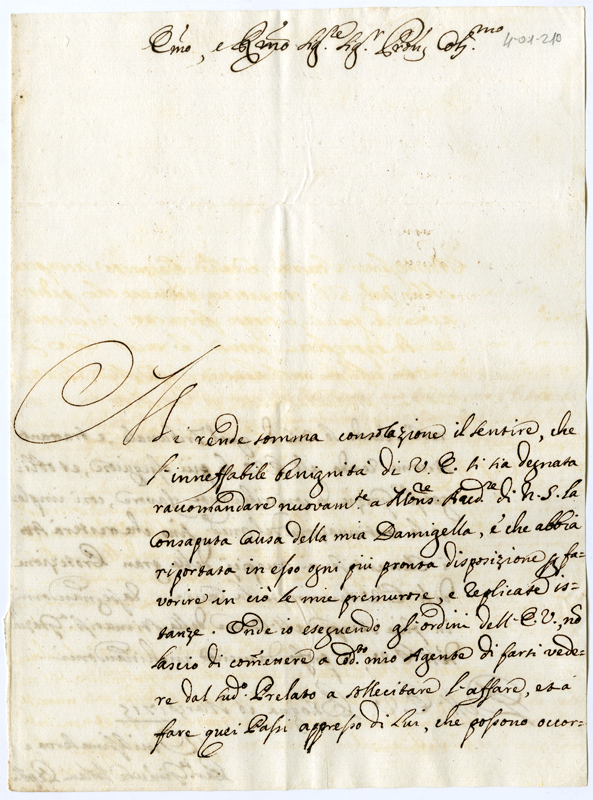 Emo, e Rmo Sig.re Sig.r Prōn Col.mo
401-210
Mi rende somma consolazione il sentire, che
l'inneffabile benignità di V. E. si sia degnata
raccomandare nuovam.te a Mons.re Aud.re di N. S. la
Consaputa Causa della mia Damigella, e che abbia
riportata in esso ogni più pronta disposizione p fa-
vorire in ciò le mie premurose, e replicate is-
tanze. Onde io eseguendo gl'ordini dell'E. V., nō
lascio di com̄ettere a cod.to mio Agente di farsi vede-
re dal sud.o Prelato a sollecitare l'affare, et a
fare quei Passi appresso di Lui, che possono occor-